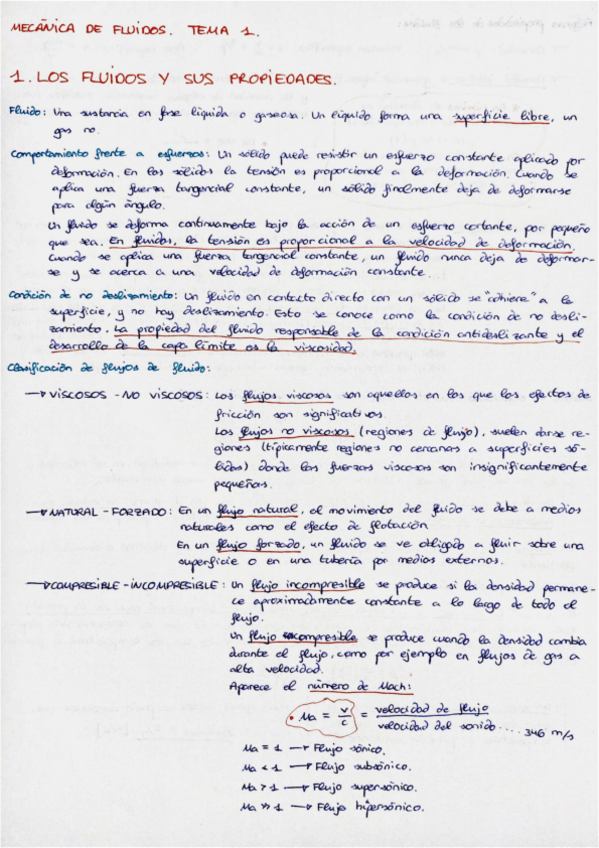 MECÁNICA DE FLUIDOS. TEMA 1.
1. LOS FLUIDOS Y SUS PROPIEDADES.
Fluido: Una sustancia en fase líquida o gaseosa. Un líquido forma una superficie libre, un
gas no.
Comportamiento frente a esfuerzos: Un sólido puede resistir un esfuerzo constante aplicado por
deformación. En los sólidos la tensión es proporcional a la deformación. Cuando se
aplica una fuerza tangencial constante, un sólido finalmente deja de deformarse
para algún ángulo.
Un fluido se deforma continuamente bajo la acción de un esfuerzo cortante, por pequeño
que sea. En fluidos, la tensión es proporcional a la velocidad de deformación.
Cuando se aplica una fuerza tangencial constante, un fluido nunca deja de deformar-
se y se acerca a una velocidad de deformación constante.
Condición de no deslizamiento: Un fluido en contacto directo con un sólido se "adhiere" a la
superficie, y no hay deslizamiento. Esto se conoce como la condición de no desli-
zamiento. La propiedad del fluido responsable de la condición antideslizante y el
desarrollo de la capa límite es la viscosidad.
Clasificación de flujos de fluido:
→ VISCOSOS - NO VISCOSOS: Los flujos viscosos son aquellos en los que los efectos de
fricción son significativos.
Los flujos no viscosos (regiones de flujo), suelen darse re-
giones (típicamente regiones no cercanas a superficies só-
lidas) donde las fuerzas viscosas son insignificantemente
pequeñas.
→ NATURAL - FORZADO: En un flujo natural, el movimiento del fluido se debe a medios
naturales como el efecto de flotación.
En un flujo forzado, un fluido se ve obligado a fluir sobre una
superficie o en una tubería por medios externos.
→ COMPRESIBLE - INCOMPRESIBLE: Un flujo incompresible se produce si la densidad permane-
ce aproximadamente constante a lo largo de todo el
flujo.
Un flujo compresible se produce cuando la densidad cambia
durante el flujo, como por ejemplo en flujos de gas a
alta velocidad.
Aparece el número de Mach:
• Ma = v/c = velocidad de flujo / velocidad del sonido .... 346 m/s
Ma = 1 → Flujo sónico.
Ma < 1 → Flujo subsónico.
Ma > 1 → Flujo supersónico.
Ma >> 1 → Flujo hipersónico.